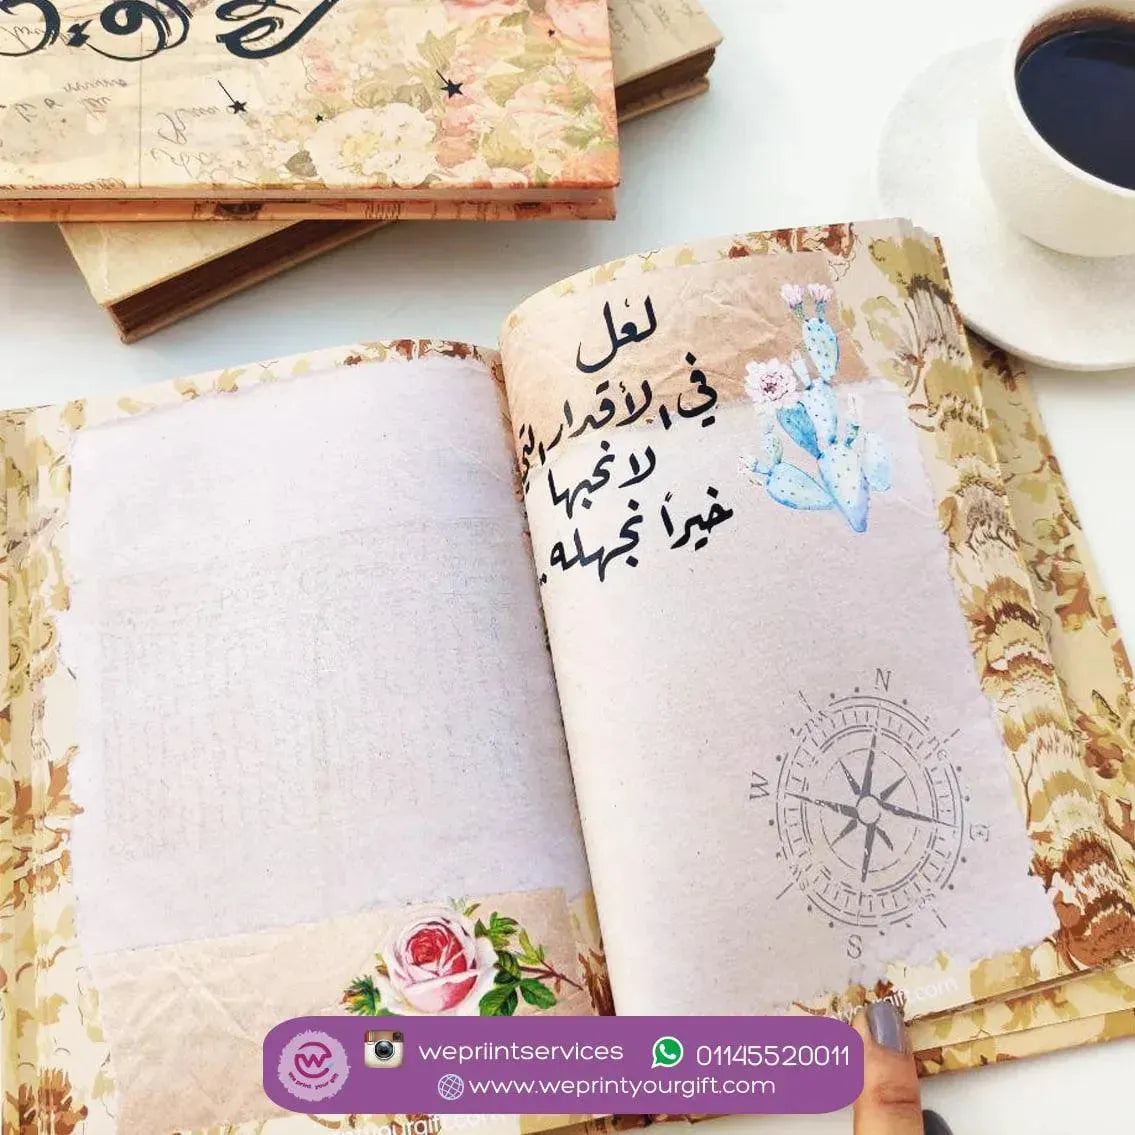 لعل
في الأقدار التي
لا نحبها
خيراً نجهله.
N
W
E
S
weprintyourgift.com
wepriintservices
01145520011
www.weprintyourgift.com